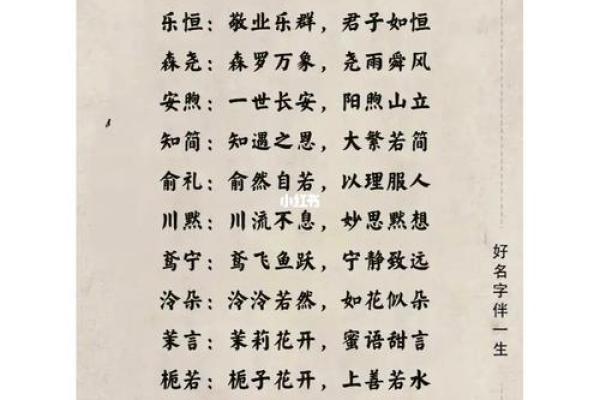 乐恒：敬业乐群，君子如恒
森尧：森罗万象，尧雨舜风
安煦：一世长安，阳煦山立
知简：知遇之恩，大繁若简
俞礼：俞然自若，以理服人
小红书
川黙：川流不息，妙思黙想
鸢宁：鸢飞鱼跃，宁静致远
泠朵：泠泠若然，如花似朵
茉言：茉莉花开，蜜语甜言
栀若：栀子花开，上善若水
好名字伴一生